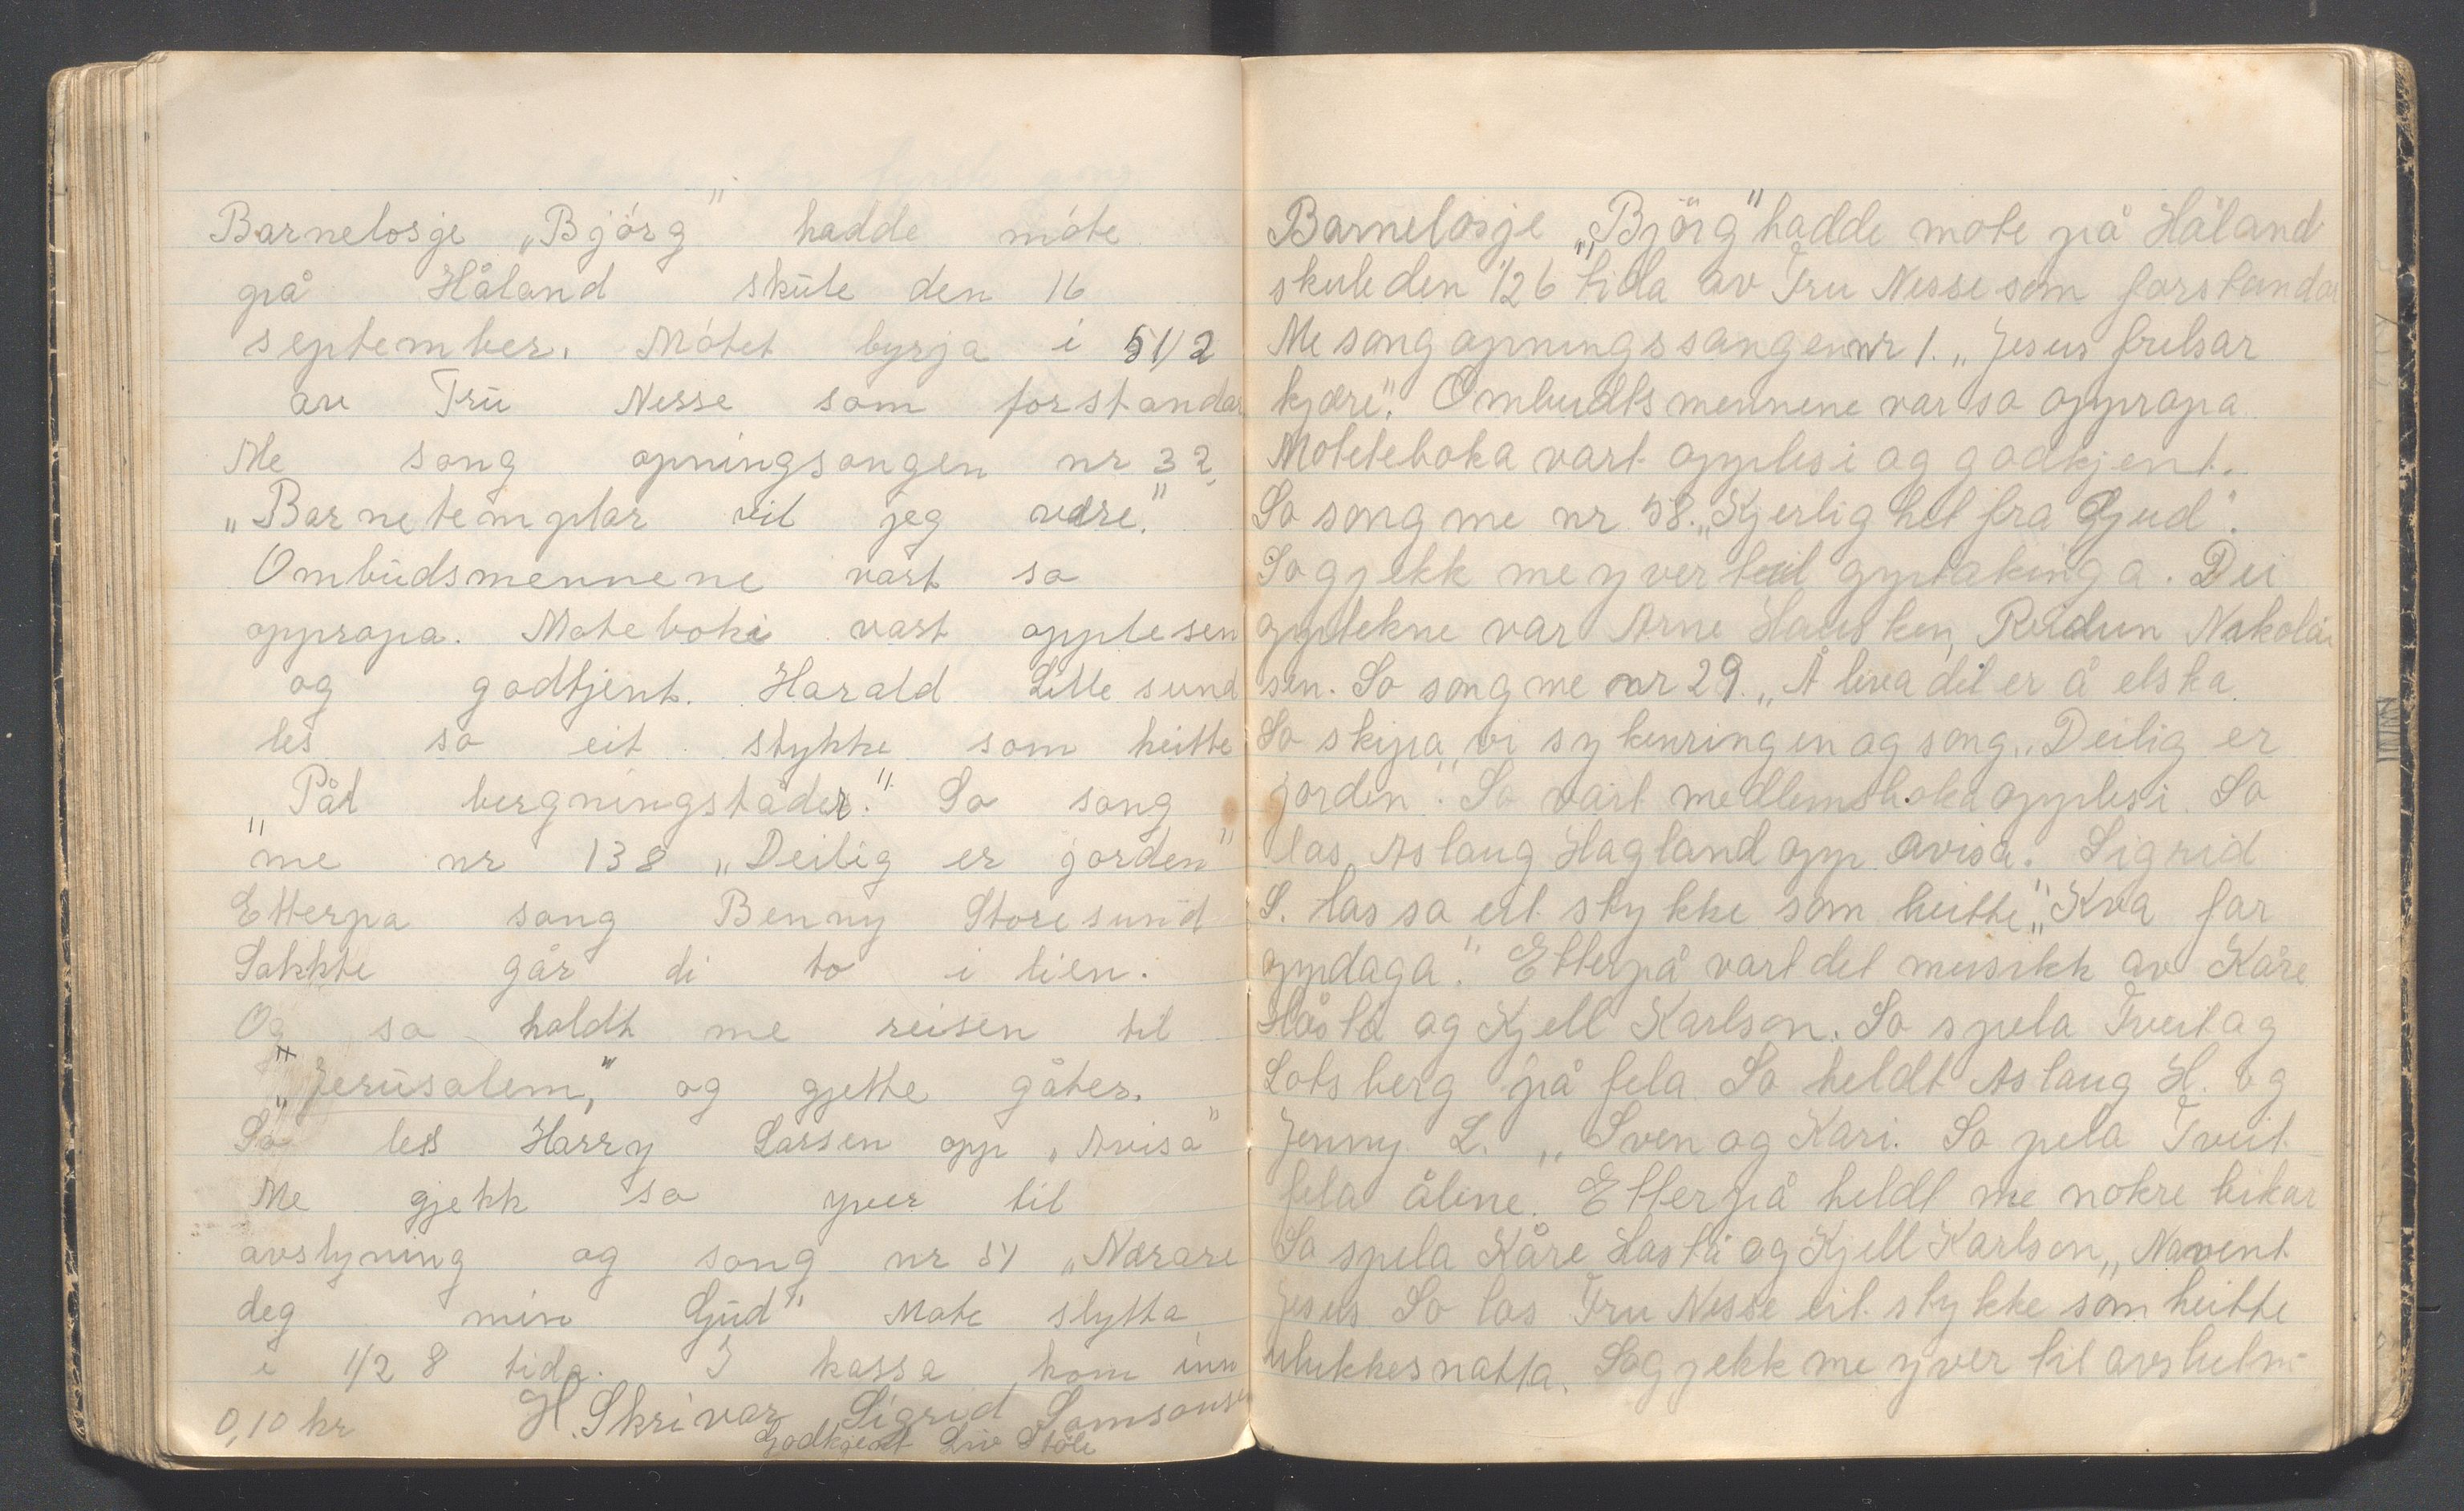 Barnelosje „Bjørg" hadde møte
på Håland skule den 16
september. Møtet byrja i 51/2
av Fru Nesse som forstandar
Me song opningsongen nr 32.
„Barnetemplar vil jeg være."
Ombudsmennene vart so
oppropa. Moteboki vart opplesen
og godkjent. Harald Littesund
les so eit stykke som heitte
„Pål bergningståder." So song
me nr 138 „Deilig er jorden"
Etterpa song Benny Storesund
Sakkte går di to i lien.
Og so holdt me reisen til
„Jerusalem," og gjette gåter.
So less Harry Larsen opp „Avisa"
Me gjekk so yver til
avslyning og song nr 51 „Nærare
deg min Gud" Mote slytta
i 1/2 8 tida. I kassa kom inn
0,10 kr H. Skrivar Sigrid Samsonsen
Godkjent Liv Støle
Barnelosje „Bjørg" hadde mote på Håland
skule den 1/2 6 tida av Fru Nesse som forstandar
Me song opningssangen nr 1. „Jesus frelsar
kjære". Ombudtsmennene var so oppropa
Moteteboka vart opplesi og godkjent.
So song me nr 58. „Kjerlighet fra Gud".
So gjekk me yver til opptakinga. Dei
opptekne var Arne Hausken, Reidun Nakolai
sen. So song me nr 29. „Å leva det er å elska
So skipa vi sykenringen og song „Deilig er
jorden". So vart medlemsboka opplesi. So
las Aslaug Hagland opp avisa. Sigrid
S. las so eit stykke som heitte „Kva far
oppdaga." Etterpå vart det musikk av Kåre
Håstå og Kjell Karlson. So spela Tveit og
Lotsberg på fela. So heldt Aslaug H. og
Jenny L. „Sven og Kari. So pela Tveit
fela åline. Etterpå heldt me nokre leikar
So spela Kåre Hastå og Kjell Karlson „Navent
Jesus So las Fru Nesse eit stykke som heitte
ulukkesnatta. So gjekk me yver til avslutni